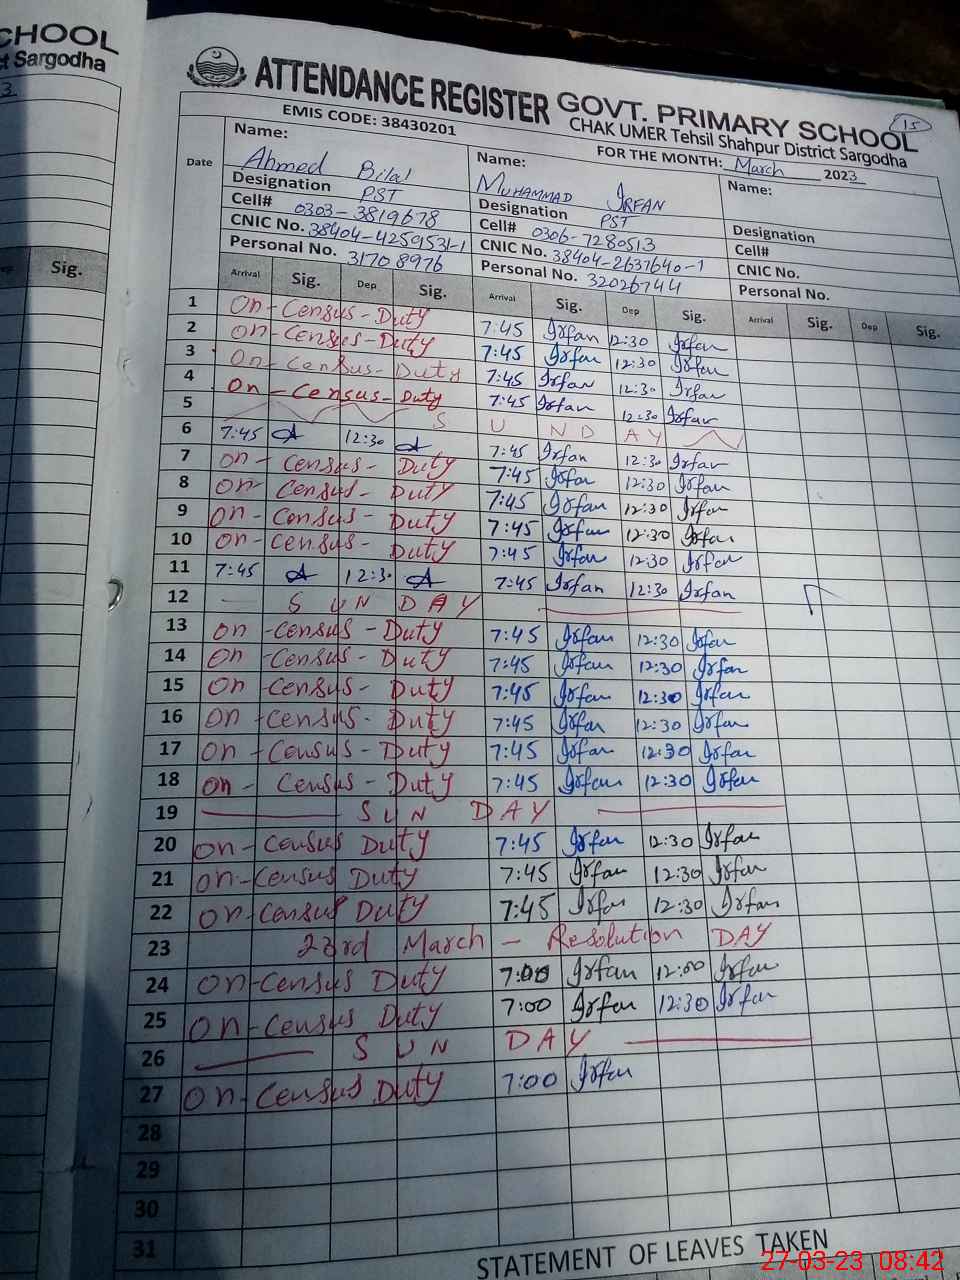 CHOOL
ct Sargodha
3
Sig.
15
ATTENDANCE REGISTER GOVT. PRIMARY SCHOOL
EMIS CODE: 38430201 CHAK UMER Tehsil Shahpur District Sargodha
FOR THE MONTH: March 2023
Date
Name: Ahmed Bilal
Designation PST
Cell# 0303-3819678
CNIC No. 38404-4259531-1
Personal No. 31708976
Name: MUHAMMAD IRFAN
Designation PST
Cell# 0306-7280513
CNIC No. 38404-2637640-1
Personal No. 32026744
Name:
Designation
Cell#
CNIC No.
Personal No.
Arrival Sig. Dep. Sig. Arrival Sig. Dep Sig. Arrival Sig. Dep Sig.
1 On-Census-Duty 7:45 Irfan 12:30 Irfan
2 On-Census-Duty 7:45 Irfan 12:30 Irfan
3 On-Census-Duty 7:45 Irfan 12:30 Irfan
4 On-Census-Duty 7:45 Irfan 12:30 Irfan
5 SUNDAY
6 7:45 12:30 7:45 Irfan 12:30 Irfan
7 On-Census-Duty 7:45 Irfan 12:30 Irfan
8 On-Census-Duty 7:45 Irfan 12:30 Irfan
9 On-Census-Duty 7:45 Irfan 12:30 Irfan
10 On-Census-Duty 7:45 Irfan 12:30 Irfan
11 7:45 12:30 7:45 Irfan 12:30 Irfan
12 SUNDAY
13 On-Census-Duty 7:45 Irfan 12:30 Irfan
14 On-Census-Duty 7:45 Irfan 12:30 Irfan
15 On-Census-Duty 7:45 Irfan 12:30 Irfan
16 On-Census-Duty 7:45 Irfan 12:30 Irfan
17 On-Census-Duty 7:45 Irfan 12:30 Irfan
18 On-Census-Duty 7:45 Irfan 12:30 Irfan
19 SUNDAY
20 On-Census Duty 7:45 Irfan 12:30 Irfan
21 On-Census Duty 7:45 Irfan 12:30 Irfan
22 On-Census Duty 7:45 Irfan 12:30 Irfan
23 23rd March - Resolution DAY
24 On-Census Duty 7:00 Irfan 12:00 Irfan
25 On-Census Duty 7:00 Irfan 12:30 Irfan
26 SUNDAY
27 On-Census Duty 7:00 Irfan
28
29
30
31
STATEMENT OF LEAVES TAKEN
27-03-23 08:42